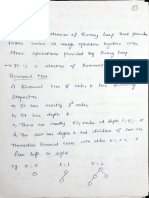 ①
of Binary heap that provide
faster union or merge operation together with
other operations provided by Binary heap.
→ It is a collection of Binomial
Binomial Tree:
A Binomial Tree of order k has following
properties.
a) It has exactly 2^k nodes
b) It has depth k.
c) There are exactly
d) The root has degree k and children of root are
themselves Binomial Trees with order k-1, k-2
from left to right.
k=0 k=1 k=2